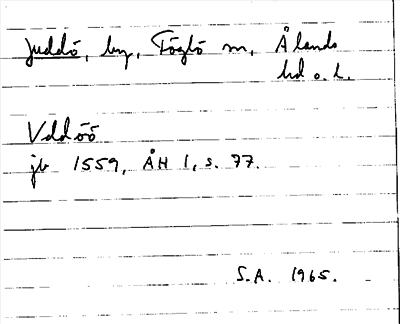 Juddö, by, Föglö sn, Ålands
hd o. l.
Vddöö
jb 1559, ÅH 1, s. 77.
S.A. 1965.